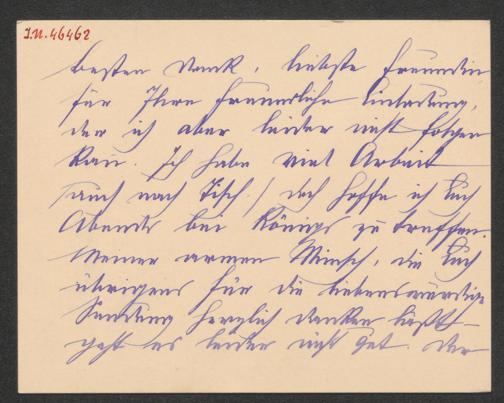 I.N. 46462
Besten Dank, liebste Freundin
für Ihre freundliche Einladung,
der ich aber leider nicht folgen
kan. Ich habe viel Arbeit
(auch nach Tisch.) doch hoffe ich Euch
Abends bei Königs zu treffen.
Meiner armen Minsch, die Euch
übrigens für die liebenswürdige
Sendung herzlich danken läßt –
geht es leider nicht gut. Der